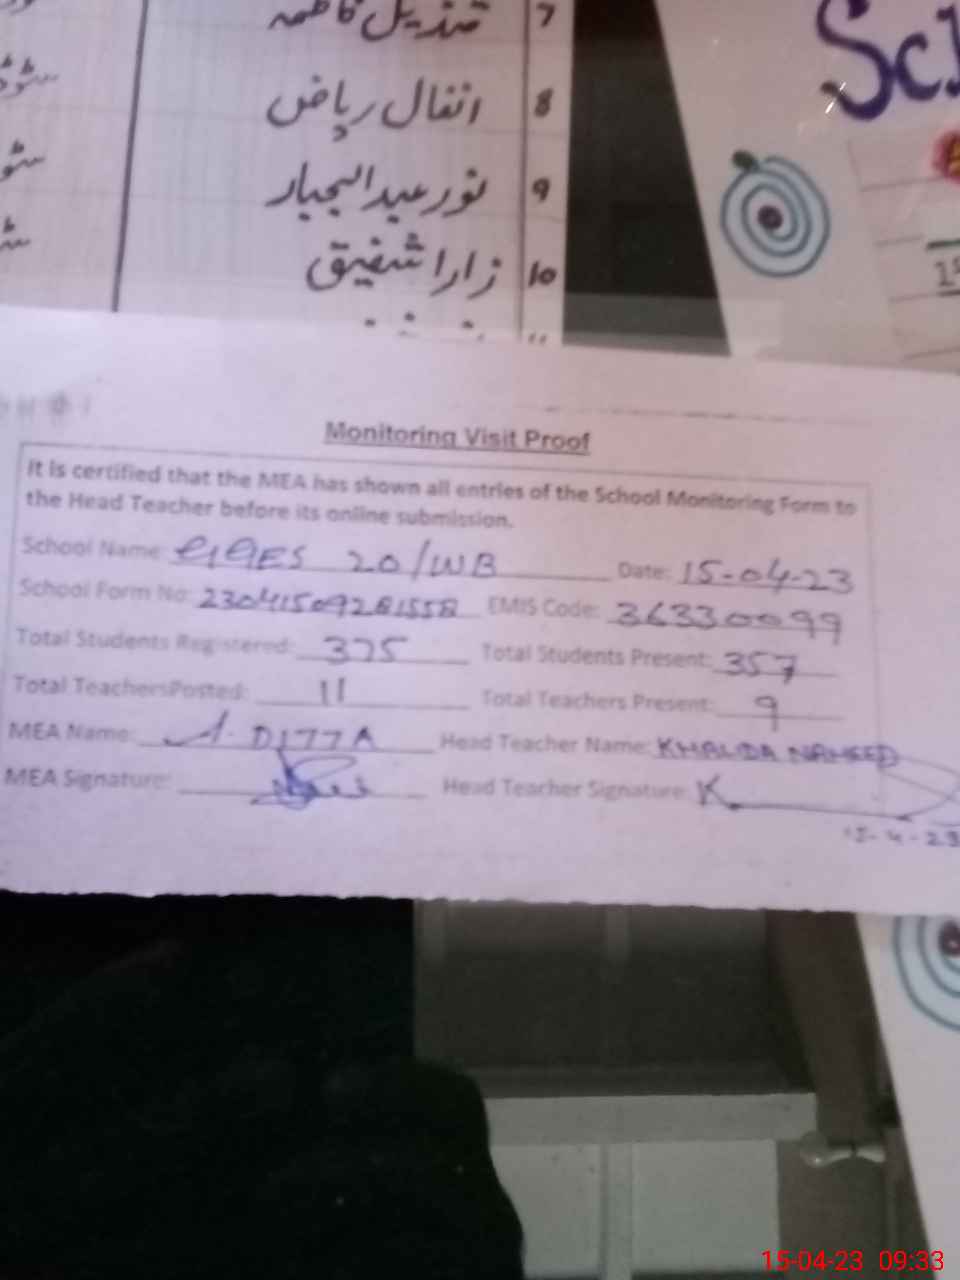 قندیل فاطمہ 7
انفال ریاض 8
نور عبدالجبار 9
زارا شفیق 10
11
Sc
Monitoring Visit Proof
It is certified that the MEA has shown all entries of the School Monitoring Form to
the Head Teacher before its online submission.
School Name: GGES 20/WB Date: 15-04-23
School Form No: 23041509281558 EMIS Code: 36330099
Total Students Registered: 375 Total Students Present: 357
Total TeachersPosted: 11 Total Teachers Present: 9
MEA Name: A. DITTA Head Teacher Name: KHALIDA NAHEED
MEA Signature: Head Teacher Signature K
15-4-23
15-04-23 09:33